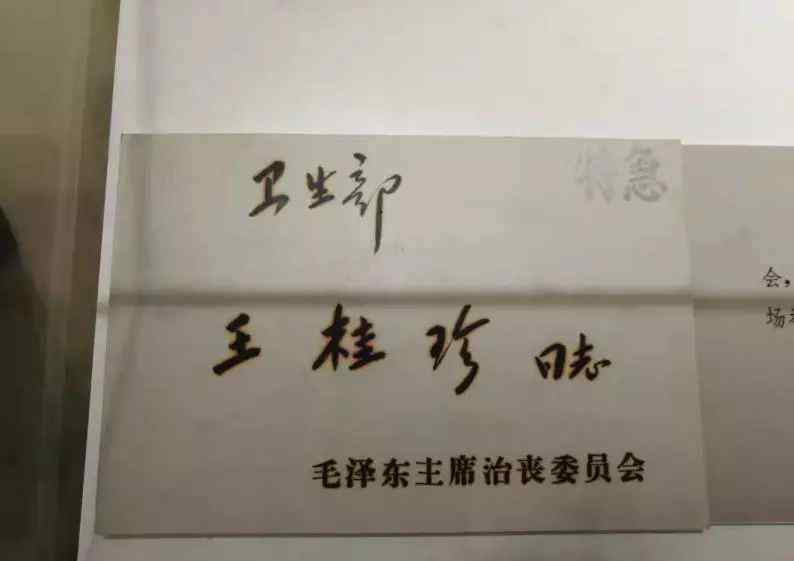 特急
卫生部
王桂珍 同志
毛泽东主席治丧委员会
会，
场